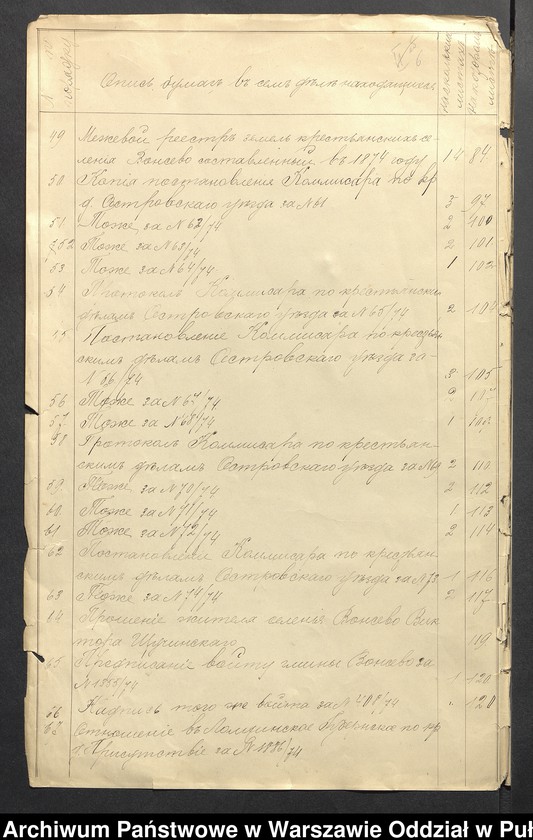 № по порядку
Опись бумагъ въ семъ дѣлѣ находящихся
6
49 Межевой реестръ земель крестьянскихъ се-
ленія Вонсево составленный въ 1874 году 14 84
50 Копія постановленія Коммисара по кр
д. Островскаго уѣзда за №61 3 97
51 Тоже за №62/74 2 100
52 Тоже за №63/74 2 101
53 Тоже за №64/74 1 102
54 Протоколъ Коммисара по крестьянски
дѣламъ Островскаго уѣзда за №65/74 2 104
Постановленіе Коммисара по крестьян
скимъ дѣламъ Островскаго уѣзда за
№66/74 3 105
56 Тоже за №67/74
57 Тоже за №68/74 1
58 Протоколъ Коммисара по крестьян-
скимъ дѣламъ Островскаго уѣзда за №69 2 110
59 Тоже за №70/74 2 112
60 Тоже за №71/74 1 113
61 Тоже за №72/74 2 114
62 Постановленіе Коммисара по крестьян
скимъ дѣламъ Островскаго уѣзда за №73 1 116
63 Тоже за №74/74 2 117
64 Прошеніе жителя селенія Вонсево Вик
тора 119
65 Предписаніе войту гмины Вонсево за
№1355/74 1 120
66 Надпись того же войта за 120
Отношеніе въ Ломжинское по кр
д. Присутствіе за №1886/74
Archiwum Państwowe w Warszawie Oddział w Puł